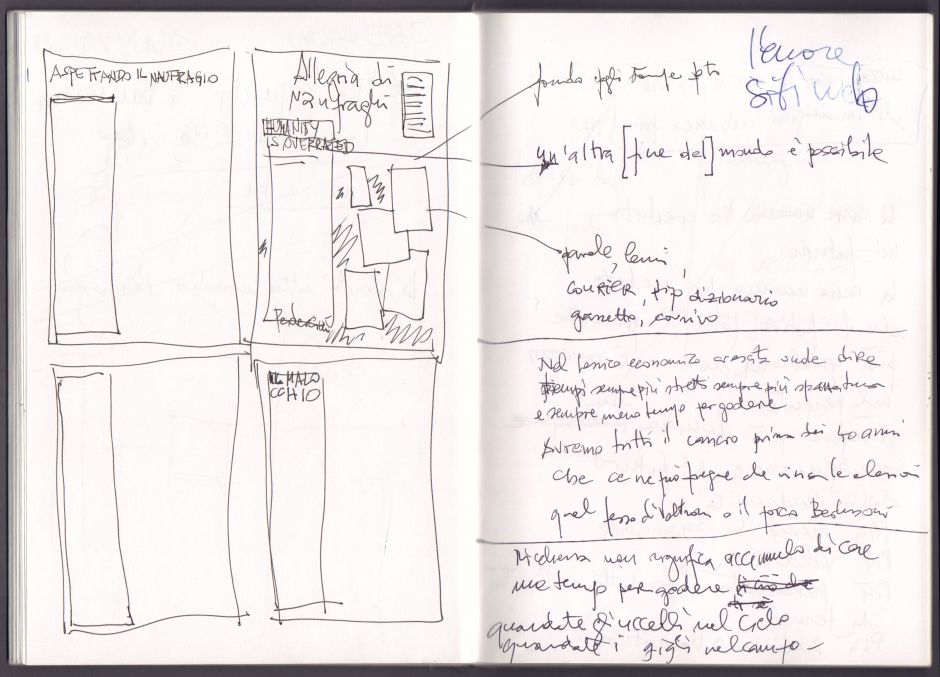 ASPETTANDO IL NAUFRAGIO
Allegria di
Naufraghi
HUMANITY
IS OVERRATED
IL MALO
CCHIO
fondo
un'altra [fine del] mondo è possibile
parole, lemmi,
COURIER, tipo dizionario
grassetto, corsivo
Nel lessico economico crescita vuole dire
tempi sempre più stretti sempre più spazzatura
e sempre meno tempo per godere
Avremo tutti il cancro prima dei 40 anni
che ce ne può fregare che vinca le elezioni
quel fesso di Veltroni o il porco Berlusconi
Ricchezza non significa accumulo di cose
ma tempo per godere
guardate gli uccelli nel cielo
guardate i gigli nel campo -